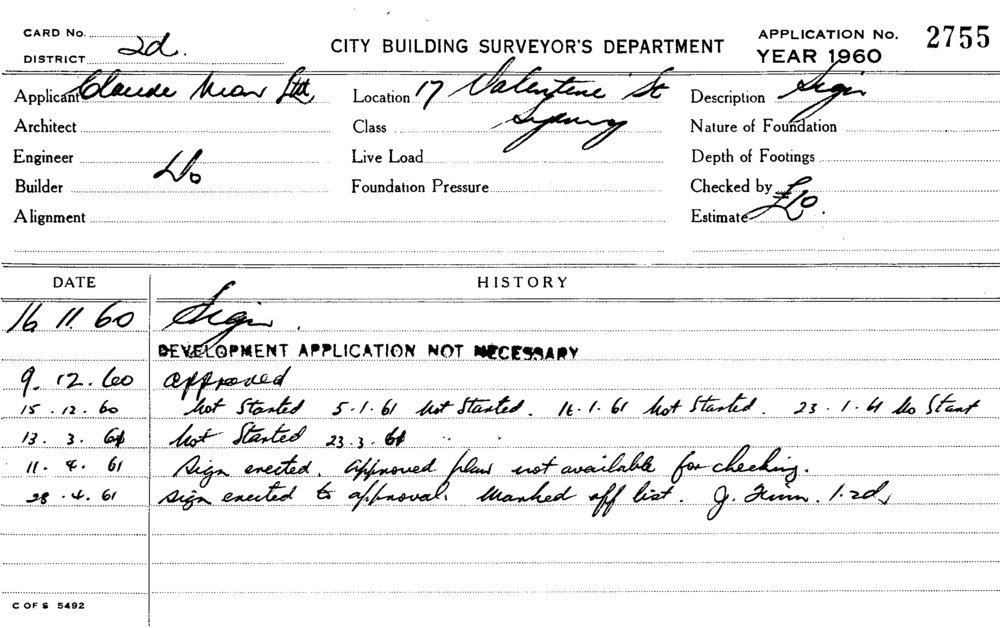 CARD No.
DISTRICT 2d.
CITY BUILDING SURVEYOR'S DEPARTMENT
APPLICATION No. 2755
YEAR 1960
Applicant Claude Neon Ltd Location 17 Valentine St Description Sign
Architect Class Sydney Nature of Foundation
Engineer Live Load Depth of Footings
Builder Do Foundation Pressure Checked by
Alignment Estimate £10.
DATE HISTORY
16 11. 60 Sign.
DEVELOPMENT APPLICATION NOT NECESSARY
9. 12. 60 approved
15. 12. 60 Not Started 5.1.61 Not Started. 16.1.61 Not Started. 23.1.61 No Start
13. 3. 61 Not Started 23.3.61 " "
11. 4. 61 Sign erected. Approved plan not available for checking.
28.4.61 Sign erected to approval. Marked off list. J. 1.2d.
C OF S 5492